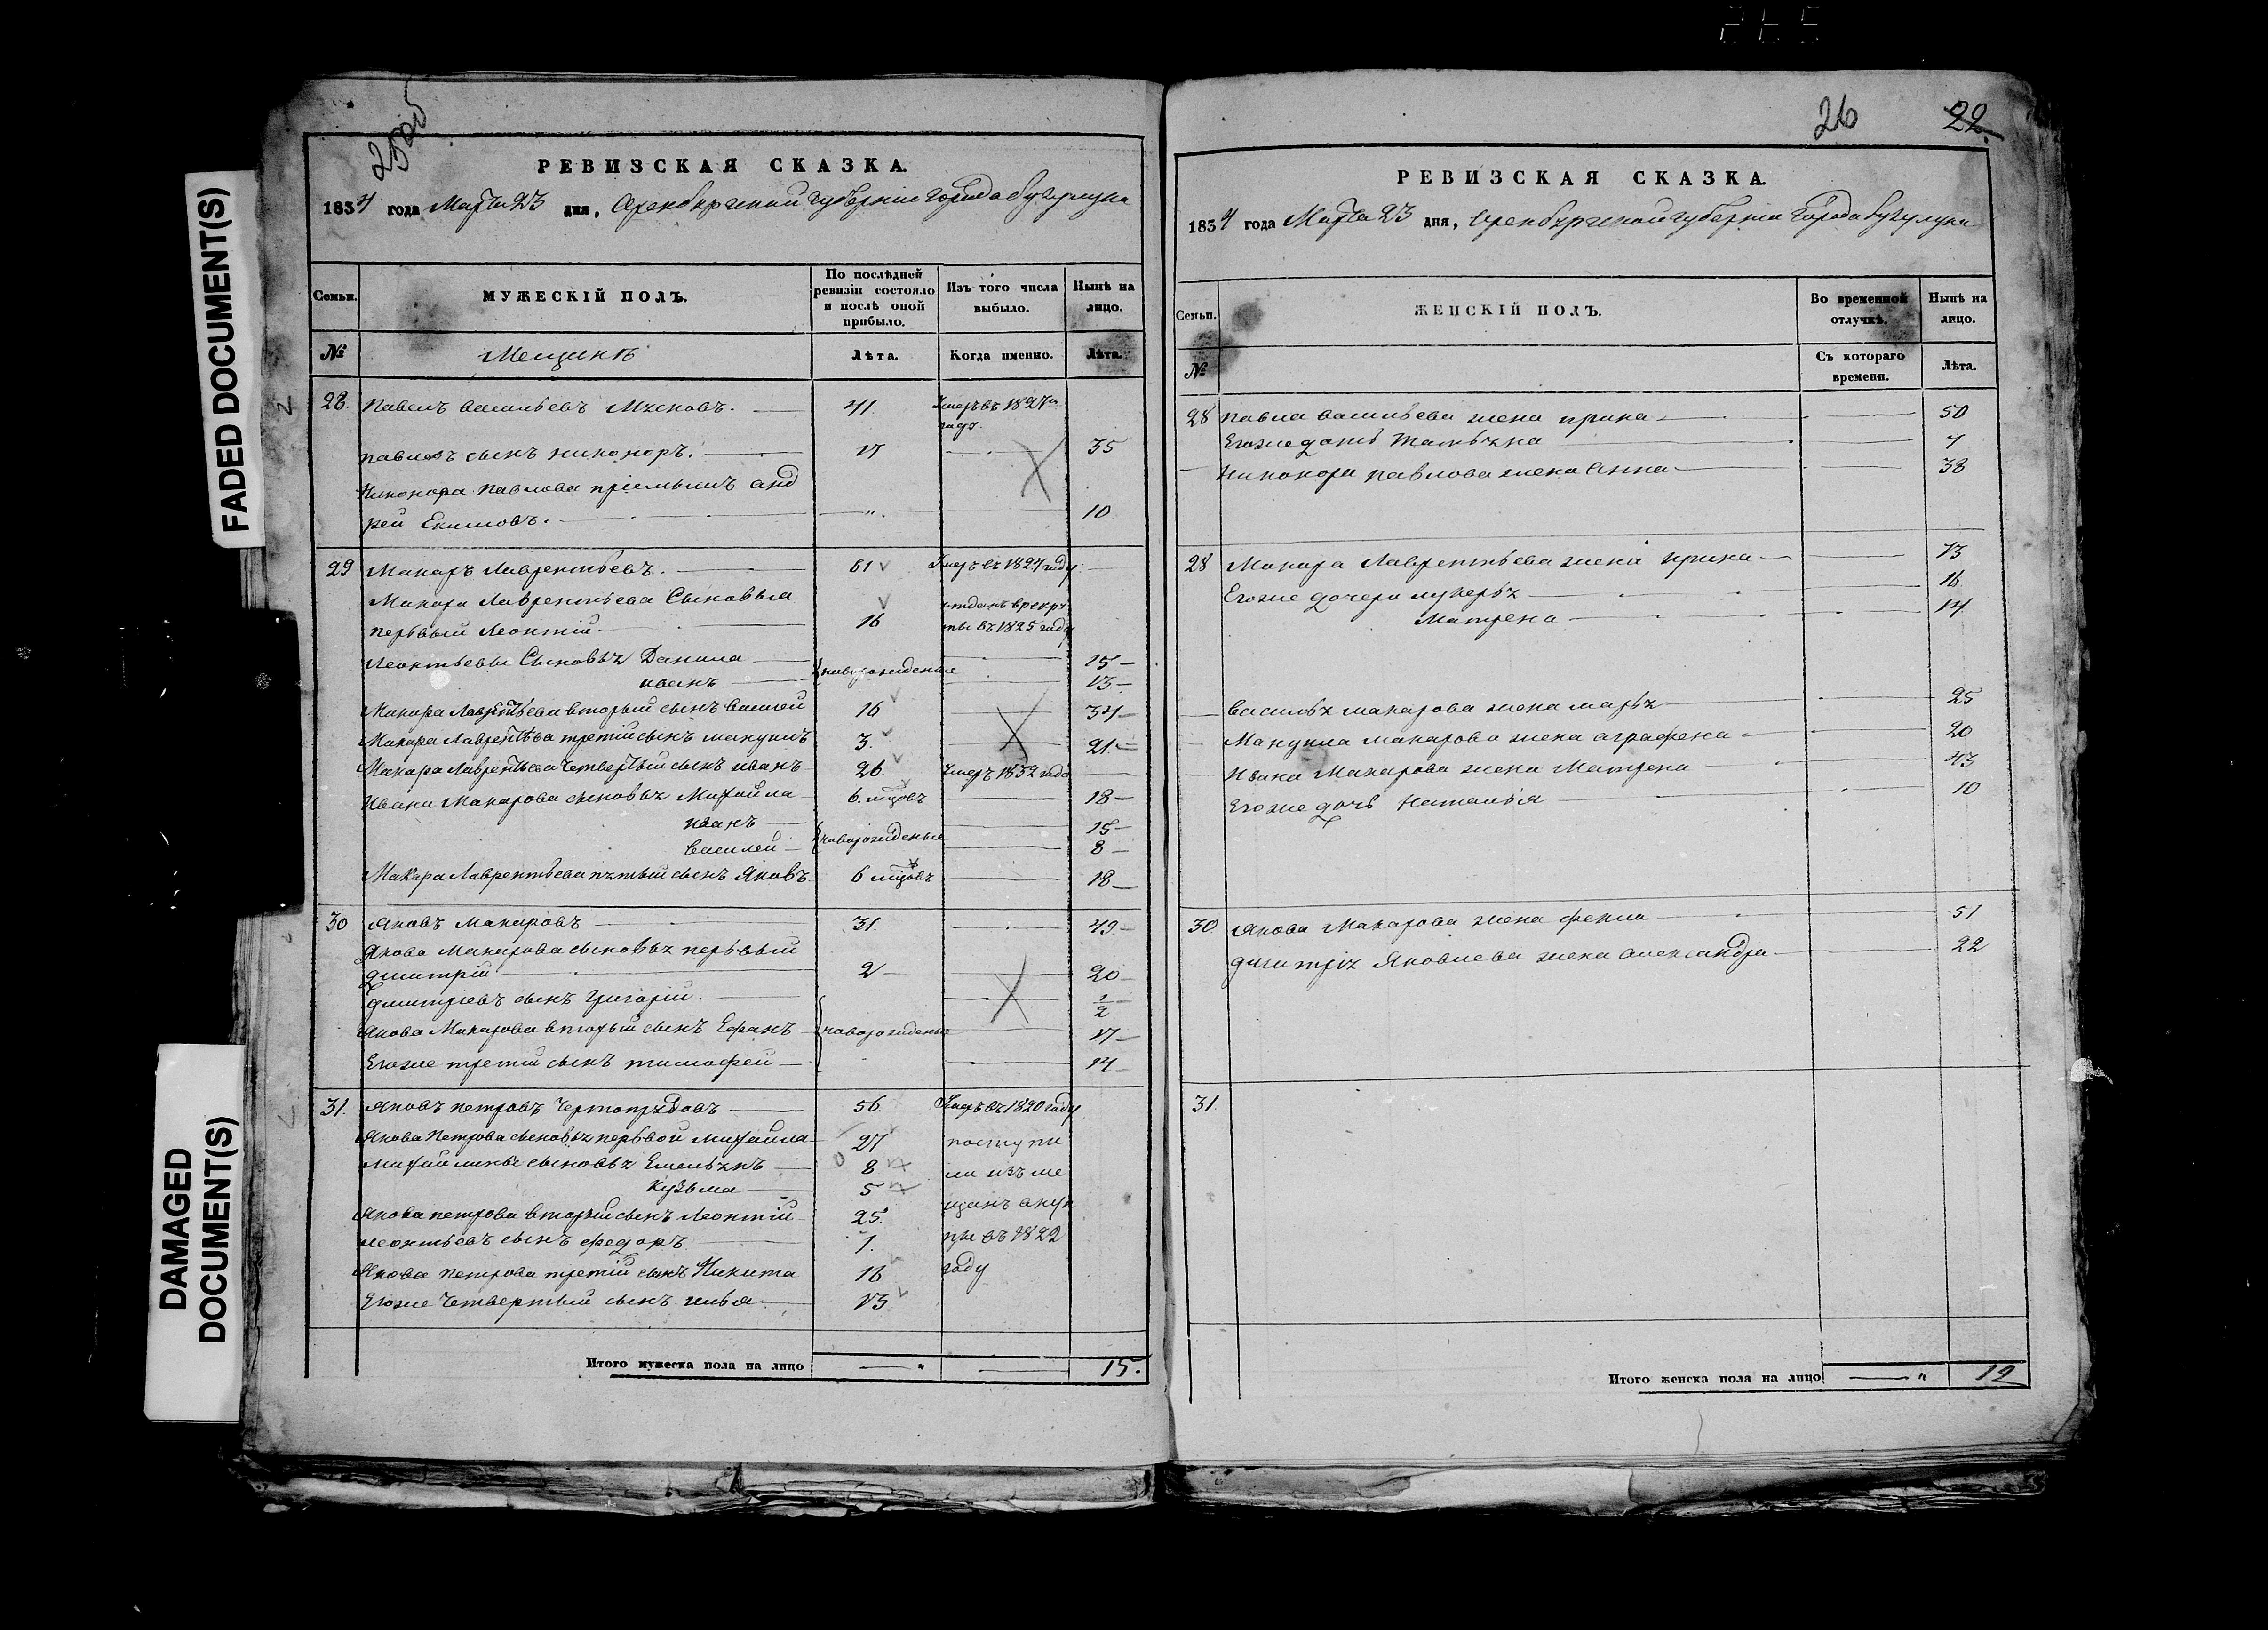 FADED DOCUMENT(S)
DAMAGED DOCUMENT(S)
25об
РЕВИЗСКАЯ СКАЗКА.
1834 года Марта 23 дня, Оренбургской губернiи города бугульмы
Семьи.
МУЖЕСКIЙ ПОЛЪ.
По послѣдней ревизiи состояло и послѣ оной прибыло.
Изъ того числа выбыло.
Нынѣ на лицо.
№
Мещанъ
Лѣта.
Когда именно.
Лѣта.
28. Павелъ васильевъ 41. Умеръ въ 1827м году.
павловъ сынъ никоноръ. 17 35
Никонора Павлова прiемышъ анд
рей Екимовъ. " 10
29 Макаръ Лаврентьевъ. 61 Умеръ въ 1827 году
Макара Лаврентьева Сыновья
первый Леонтiй 16 отданъ врекру
ты въ 1825 году
Леонтьевы Сыновья Данила 15
иванъ новорожденые 13
Макара Лаврентьева вторый сынъ василей 16 34
Макара Лаврентьева третiй сынъ макулъ 3. 21
Макара Лаврентьева Четвертый сынъ иванъ 26. Умеръ 1832 года
Ивана Макарова сыновья Михайла 6. мцовъ 18
иванъ 15
василей новорожденые 8
Макара Лаврентьева пятый сынъ Яковъ 6 мцовъ 18
30 Яковъ Макаровъ 31. 49
Якова Макарова сыновья первый
дмитрiй 2 20
дмитрiевъ сынъ григорiй. 1/2
Якова Макарова вторый сынъ новорожденые 17
Егоже третiй сынъ тимофей 14
31. Яковъ петровъ 56. Умеръ въ 1820 году
Якова Петрова сыновья первой Михайла 27 поступи
сыновья Емельянъ 8 ли изъ ме
Кузьма 5 щанъ вкуп
Якова петрова вторый сынъ Леонтiй 25. цы въ 1822
леонтьевъ сынъ федоръ 1. году
Якова Петрова третiй сынъ Никита 16
Егоже Четвертый сынъ илья 13
Итого мужеска пола на лицо " 15.
26 22.
РЕВИЗСКАЯ СКАЗКА.
1834 года Марта 23 дня, Оренбургской губернiи города бугульмы
Семьи.
ЖЕНСКIЙ ПОЛЪ.
Во временной отлучкѣ.
Нынѣ на лицо.
№
Съ котораго времени.
Лѣта.
28 павла васильева жена ирина 50
Егоже дочь татьяна 7
Никонора павлова жена Анна 38
28 Макара Лаврентьева жена ирина 73
Егоже дочери лукерья 16
Матрена 14
василья макарова жена марья 25
Макула макарова жена аграфена 20
Ивана Макарова жена Матрена 43
Егоже дочь Наталья 10
30 Якова Макарова жена фекла 51
дмитрiя Яковлева жена александра 22
31.
Итого женска пола на лицо " 12